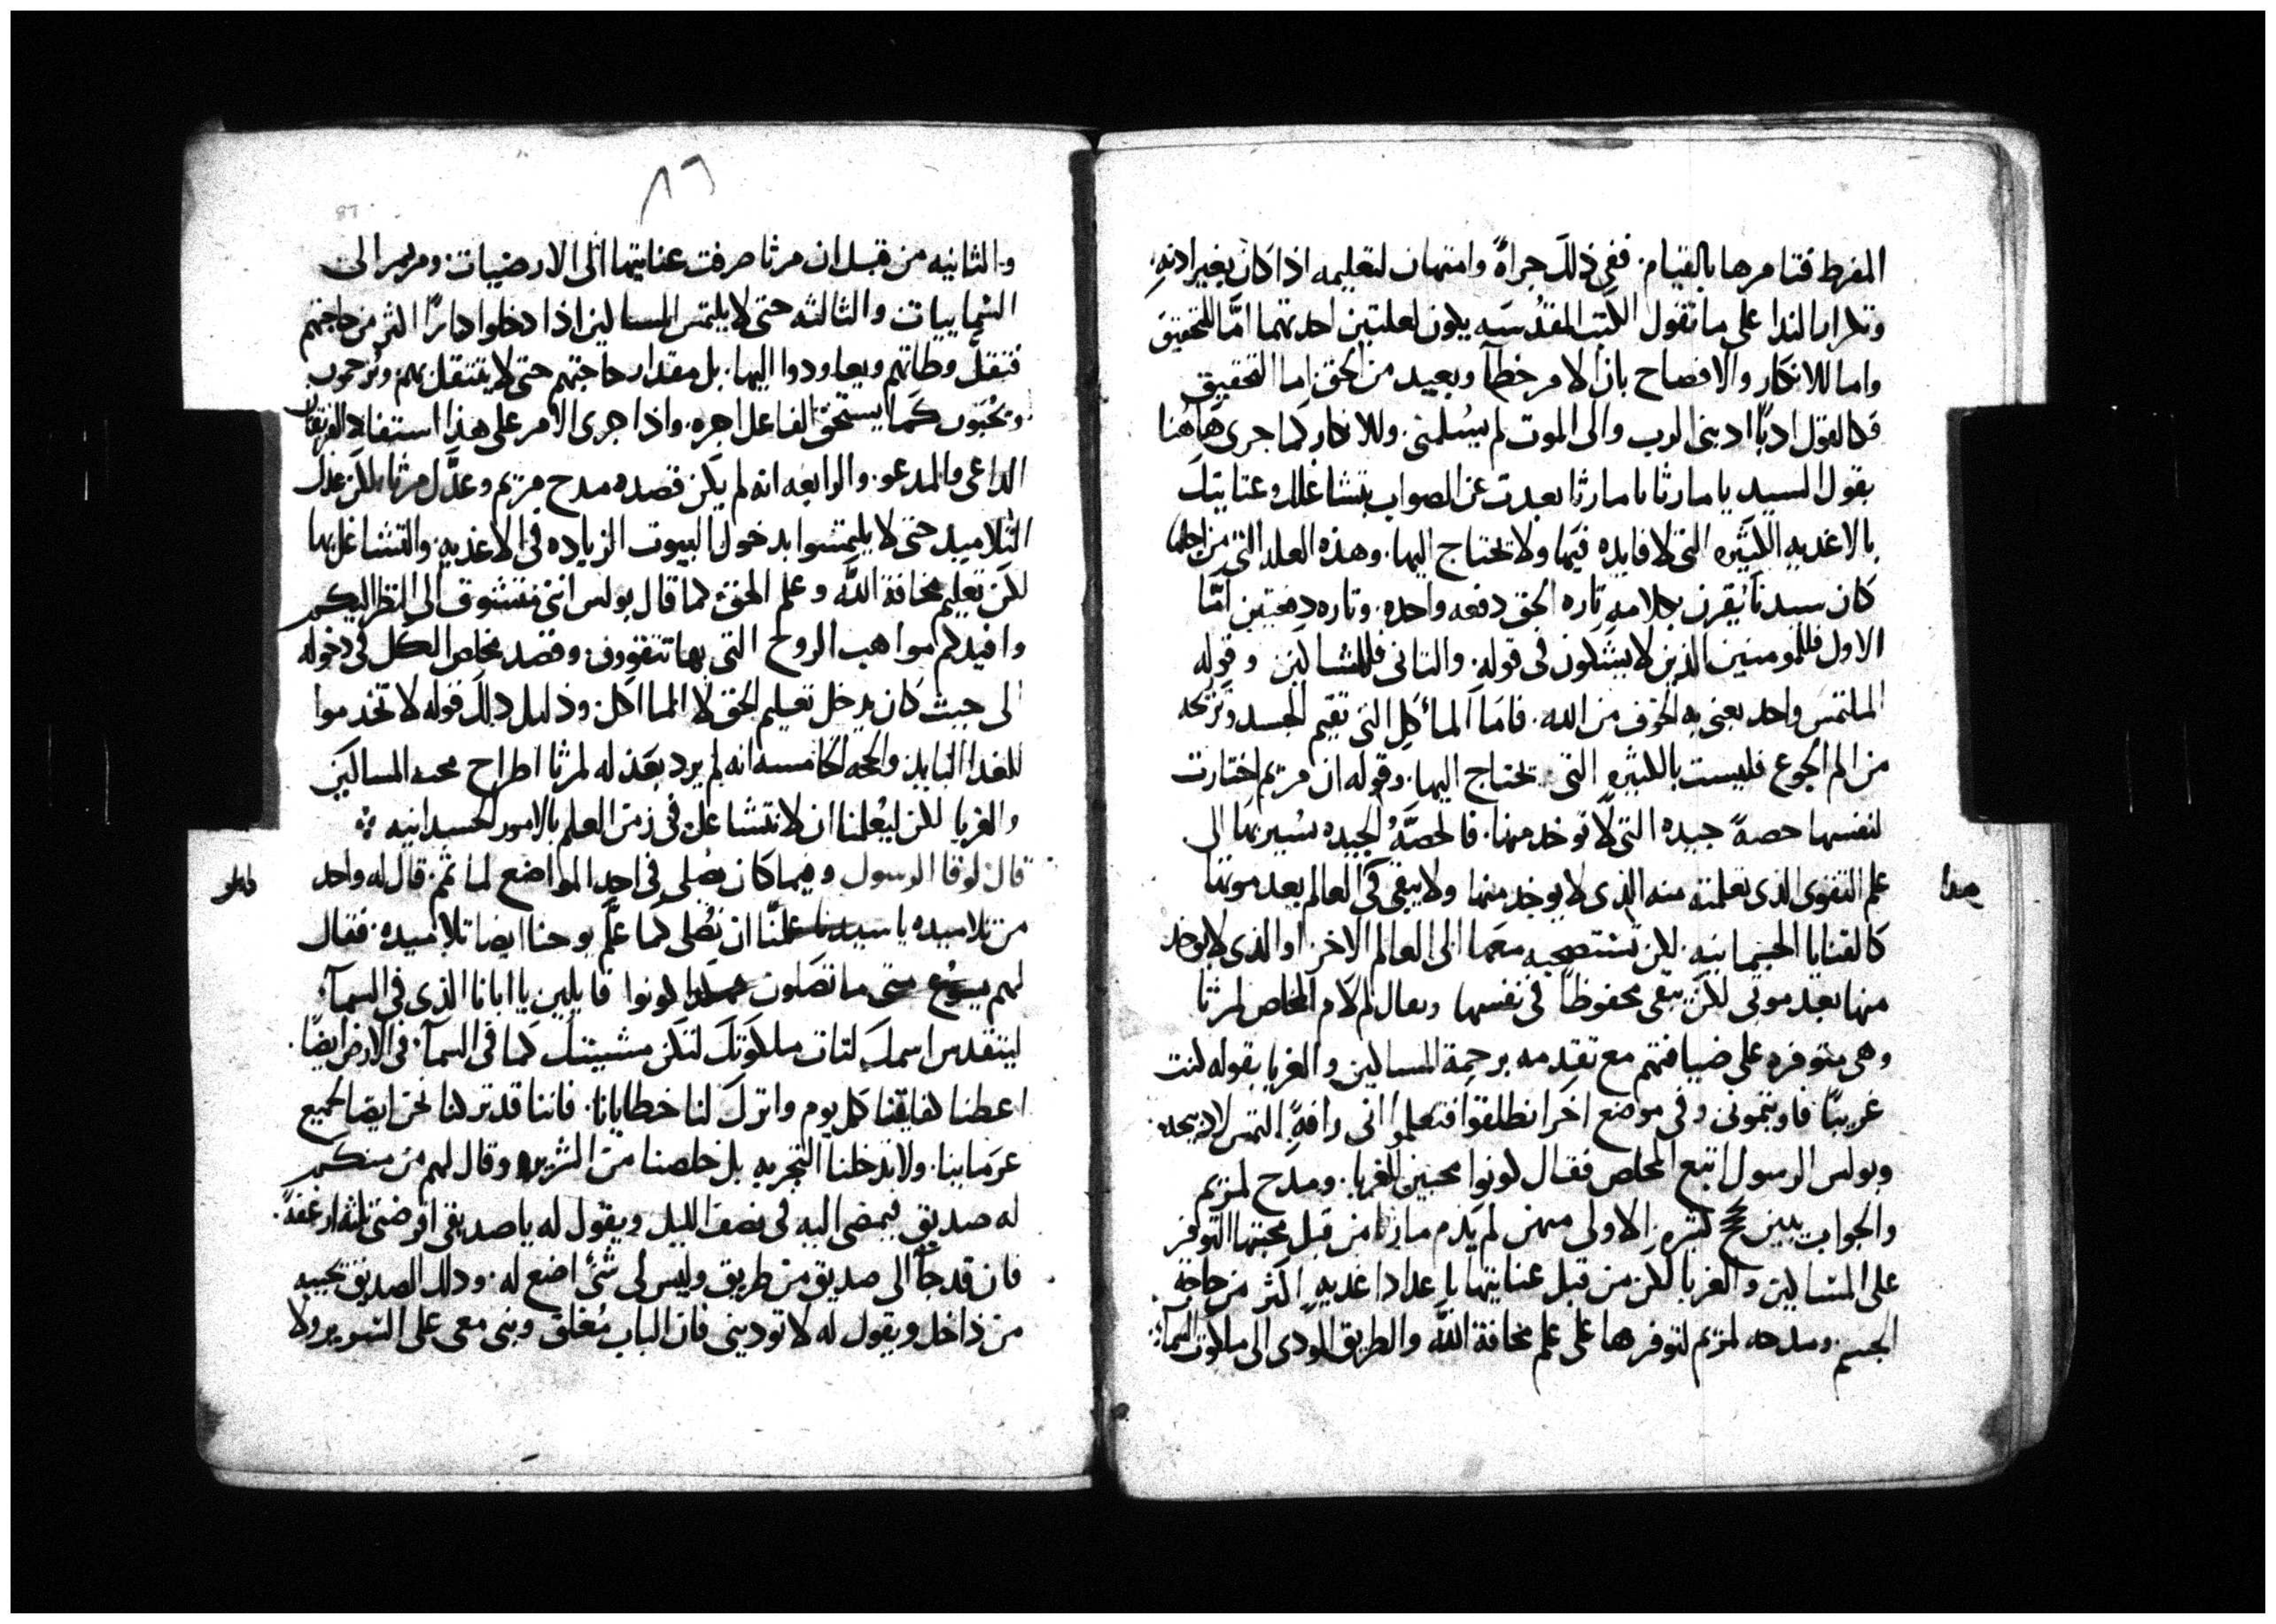 المفرط فتامرها بالقيام. ففي ذلك جراةً وامتهان لتعليمه اذا كان بغير اذنه.
وتكرار الندا على ما تقول الكتب المقدسه يكون لعلتين احدتهما امَّا للتحقيق
واما للانكار والافصاح بان الامر خطآ وبعيد من الحق اما التحقيق
فكالقول ادبًا ادبنى الرب والى الموت لم يسلمنى. وللانكار كما جرى هاهنا
بقول السيد يا مارثا يا مارثا بعدت عن الصواب بتشاغلك وعنايتك
بالاغذيه الكثيره التى لا فايده فيها ولا تحتاج اليها. وهذه العله التى من اجلها
كان سيدنا يقرن بكلامه تاره الحق دفعه واحده. وتاره دفعتين امَّا
الاول فللمومنين الذين لا يشكون فى قوله. والثانى فللشاكين وقوله
الملتمس واحد يعنى به الخوف من الله. فاما المأكل التى تقيم الجسد وتريحه
من الم الجوع فليست بالكثيره التى تحتاج اليها. وقوله ان مريم اختارت
لنفسها حصةً جيده التى لا توخد منها. فالحصَّةُ الجيده يشير بها الى
علم التقوى الذى تعلمته منه الذى لا يوخد منها ولا يبقى فى العالم بعد موتها
هدا
كالقنايا الجسمانيه. لكن تستصحبه معها الى العالم الاخر. او الذى لا يوخد
منها بعد موتى لكن يبقى محفوظاً فى نفسها ويقال لم لام المخلص لمرثا
وهى متوفره على ضيافتهم مع تقدمه برحمة المساكين والغربا بقوله كنت
غريبًا فاويتمونى وفى موضع اخر انطلقوا فتعلموا انى رافةً التمس لا ذبيحه.
وبولس الرسول اتبع المخلص فقال كونوا محبين الغربا. ومدح لمريم
والجواب يبين حجج كثيره. الاولى منهن لم يذم مارثا من قبل محبتها التوفر
على المساكين والغربا لكن من قبل عنايتها باعداد اغذيه اكثر من حاجة
الجسم. ومدحه لمريم لتوفرها على علم مخافة الله والطريق المودى الى ملكوت السماء.
٨٦
87
والثانيه من قبل ان مرثا صرفت عنايتها الى الارضيات ومريم الى
السماييات والثالثه حتى لا يلتمس المساكين اذا دخلوا دارًا اكثر من حاجتهم
فتثقل وطاتهم ويعاودوا اليها. بل مقدار حاجتهم حتى لا يتثقل بهم ويرحمون
ويحبون كما يستحق الفاعل اجره. واذا جرى الامر على هذا استفاد الفريقان
الداعى والمدعو. والرابعه انه لم يكن قصده مدح مريم وعدَّل مرثا لكن عدل
التلاميد حتى لا يلتمسوا بدخول البيوت الزياده فى الاغذيه والتشاغل بها
لكن تعليم مخافة الله وعلم الحق كما قال بولس اننى متشوق الى النظر اليكم
وافيدكم مواهب الروح التى بها تتقوون. وقصد مخلص الكل فى دخوله
الى حيث كان يدخل تعليم الحق لا الماكل. ودليل دلك قوله لا تخدموا
للغدا البايد. والحجه الخامسه انه لم يرد بعذله لمرثا اطراح محبه المساكين
والغربا لكن ليعلمنا ان لا نتشاغل فى زمن العلم بالامور الجسدانيه ⁘
قال لوقا الرسول وفيما كان يصلى فى احد المواضع لما تمم. قال له واحد
من تلاميده يا سيدنا علمنا ان نصلى كما علم يوحنا ايضا تلاميده. فقال
لهم يسوع متى ما تصلون هكدا كونوا قايلين يا ابانا الذى فى السمآء
ليتقدس اسمك لتات ملكوتك لتكن مشيتك كما فى السمآ. فى الارض ايضًا.
اعطنا كفايتنا كل يوم واترك لنا خطايانا. فاننا قد تركنا نحن ايضا لجميع
غرماينا. ولا تدخلنا التجربه بل خلصنا من الشرير. وقال لهم من منكم
له صديق فيمضى اليه فى نصف الليل ويقول له يا صديقى اقرضنى ثلثه ارغفةً.
فان قد جآ الى صديق من طريق وليس لى شئ اضع له. ودلك الصديق يجيبه
من داخل ويقول له لا توذينى فان الباب مُغلق وبنى معى على السرير ولا